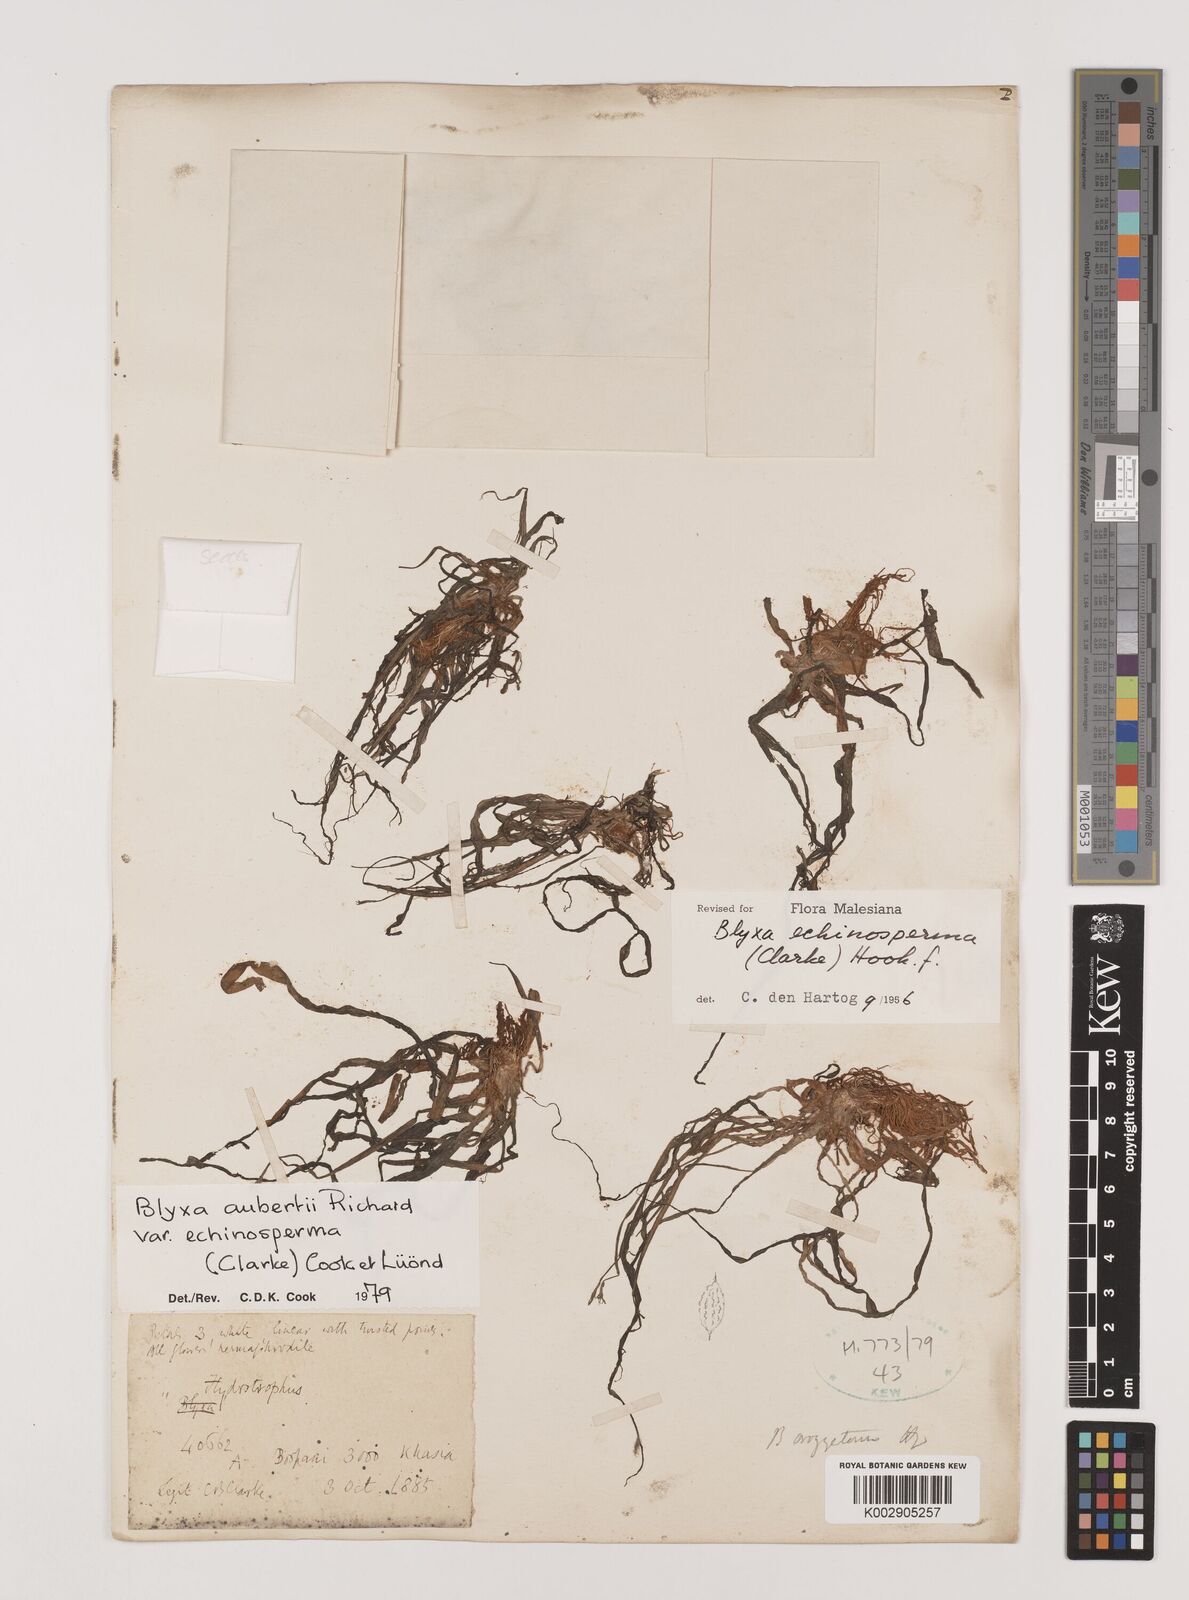 Seeds
Revised for Flora Malesiana
Blyxa echinosperma
(Clarke) Hook. f.
det. C. den Hartog 9/1956
Blyxa aubertii Richard
var. echinosperma
(Clarke) Cook et Lüönd
Det./Rev. C. D. K. Cook 1979
Petals 3, white linear with twisted points.
All flowers hermaphrodite
" Hydrotrophus
Blyxa
40662
A Boopani 3000 Khasia
Legit CBClarke. 3 Oct. 1885
H. 773/79
43
KEW
B
ROYAL BOTANIC GARDENS KEW
K002905257
inches
Density
Don Williams
M001053
centimeters
Royal Botanic Gardens
Kew
0 1 2 3 4 5 6 7 8 9 10
cm
copyright reserved